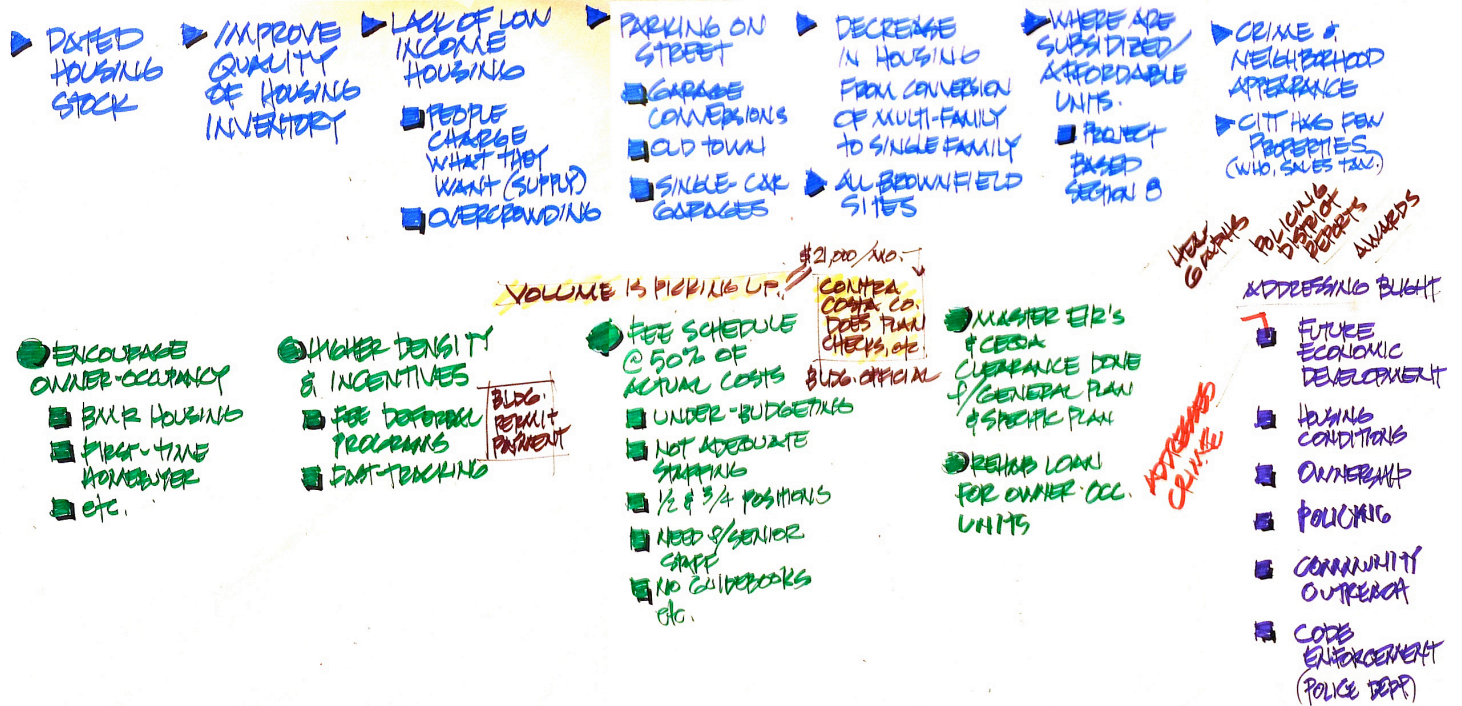 DATED
HOUSING
STOCK
IMPROVE
QUALITY
OF HOUSING
INVENTORY
LACK OF LOW
INCOME
HOUSING
PEOPLE
CHARGE
WHAT THEY
WANT (SUPPLY)
OVERCROWDING
PARKING ON
STREET
GARAGE
CONVERSIONS
OLD TOWN
SINGLE-CAR
GARAGES
DECREASE
IN HOUSING
FROM CONVERSION
OF MULTI-FAMILY
TO SINGLE FAMILY
ALL BROWNFIELD
SITES
WHERE ARE
SUBSIDIZED/
AFFORDABLE
UNITS.
PROJECT
BASED
SECTION 8
CRIME &
NEIGHBORHOOD
APPEARANCE
CITY HAS FEW
PROPERTIES
(WHO, SALES TAX.)
POLICING
DISTRICT
REPORTS
AWARDS
$21,000/MO.
VOLUME IS PICKING UP.
CONTRA
COSTA CO.
DOES PLAN
CHECKS, etc
BLDG. OFFICIAL
ENCOURAGE
OWNER-OCCUPANCY
BMR HOUSING
FIRST-TIME
HOMEBUYER
etc.
HIGHER DENSITY
& INCENTIVES
FEE DEFERRAL
PROGRAMS
FAST-TRACKING
BLDG.
PERMIT
PAYMENT
FEE SCHEDULE
@ 50% OF
ACTUAL COSTS
UNDER-BUDGETING
NOT ADEQUATE
STAFFING
1/2 & 3/4 POSITIONS
NEED f/SENIOR
STAFF
NO GUIDEBOOKS
etc.
MASTER EIR'S
& CEQA
CLEARANCE DONE
f/GENERAL PLAN
& SPECIFIC PLAN
REHAB LOAN
FOR OWNER-OCC.
UNITS
ADDRESSES
CRIME
ADDRESSING BLIGHT
FUTURE
ECONOMIC
DEVELOPMENT
HOUSING
CONDITIONS
OWNERSHIP
POLICING
COMMUNITY
OUTREACH
CODE
ENFORCEMENT
(POLICE DEPT)